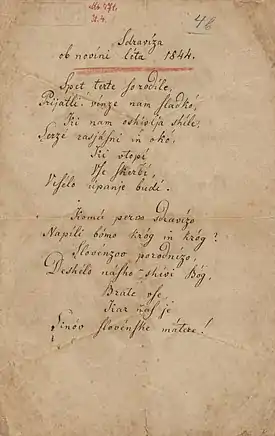 48
Sdravíza
ob novini léta 1844.
Spet terte so rodile,
Prijatli! vinze nam sladkó,
Ki nam oshivlja shile,
Serzé rasjasni in okó,
Ki vtopí
Vse skerbí
Veselo upanje budí.
Komú pervo sdravizo
Napíli bómo króg in króg?
Slovénzov porodnízo,
Deshelo násho - shivi Bóg,
Brate vse,
Kar nas je
Sinóv slovénske mátere!